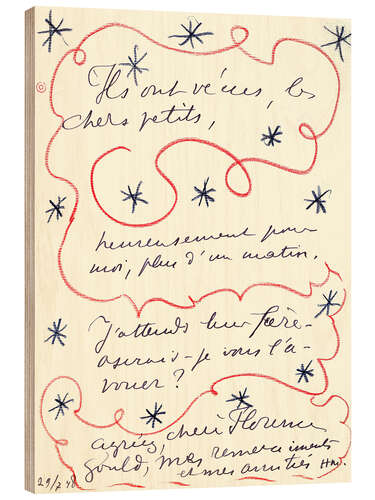 Ils ont vécus, les
chers petits,
heureusement pour
moi, plus d'un matin.
J'attends leur frère-
oserais-je vous l'a-
vouer ?
agréez, chère Florence
Gould, mes remerciements
et mes amitiés HM.
29/2 48